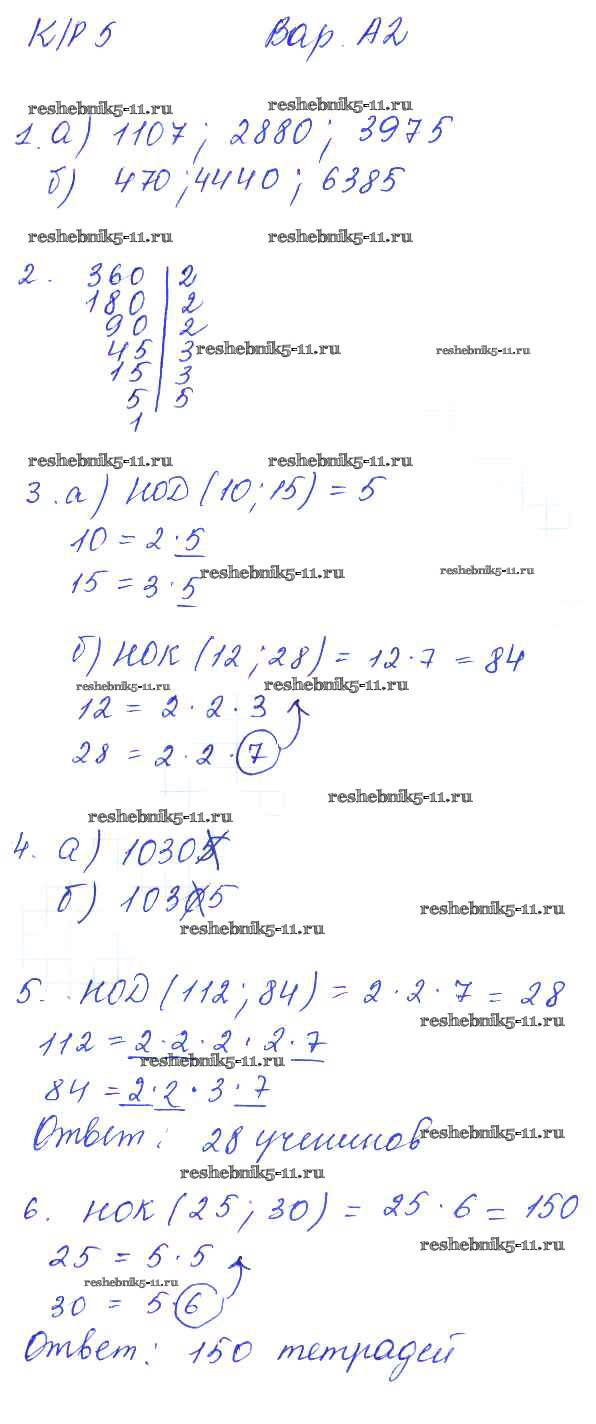 К/Р 5 Вар. А2
reshebnik5-11.ru reshebnik5-11.ru
1. а) 1107; 2880; 3975
б) 470; 4440; 6385
reshebnik5-11.ru reshebnik5-11.ru
2. 360 | 2
180 | 2
90 | 2
45 | 3 reshebnik5-11.ru reshebnik5-11.ru
15 | 3
5 | 5
1
reshebnik5-11.ru reshebnik5-11.ru
3. а) НОД (10; 15) = 5
10 = 2 · 5
reshebnik5-11.ru reshebnik5-11.ru
15 = 3 · 5
б) НОК (12; 28) = 12 · 7 = 84
reshebnik5-11.ru reshebnik5-11.ru
12 = 2 · 2 · 3
28 = 2 · 2 · 7
reshebnik5-11.ru
reshebnik5-11.ru
4. а) 10305
б) 10305
reshebnik5-11.ru
reshebnik5-11.ru
5. НОД (112; 84) = 2 · 2 · 7 = 28
reshebnik5-11.ru
112 = 2 · 2 · 2 · 2 · 7
reshebnik5-11.ru
84 = 2 · 2 · 3 · 7
Ответ: 28 учеников
reshebnik5-11.ru
reshebnik5-11.ru
6. НОК (25; 30) = 25 · 6 = 150
reshebnik5-11.ru
25 = 5 · 5
reshebnik5-11.ru
30 = 5 · 6
Ответ: 150 тетрадей